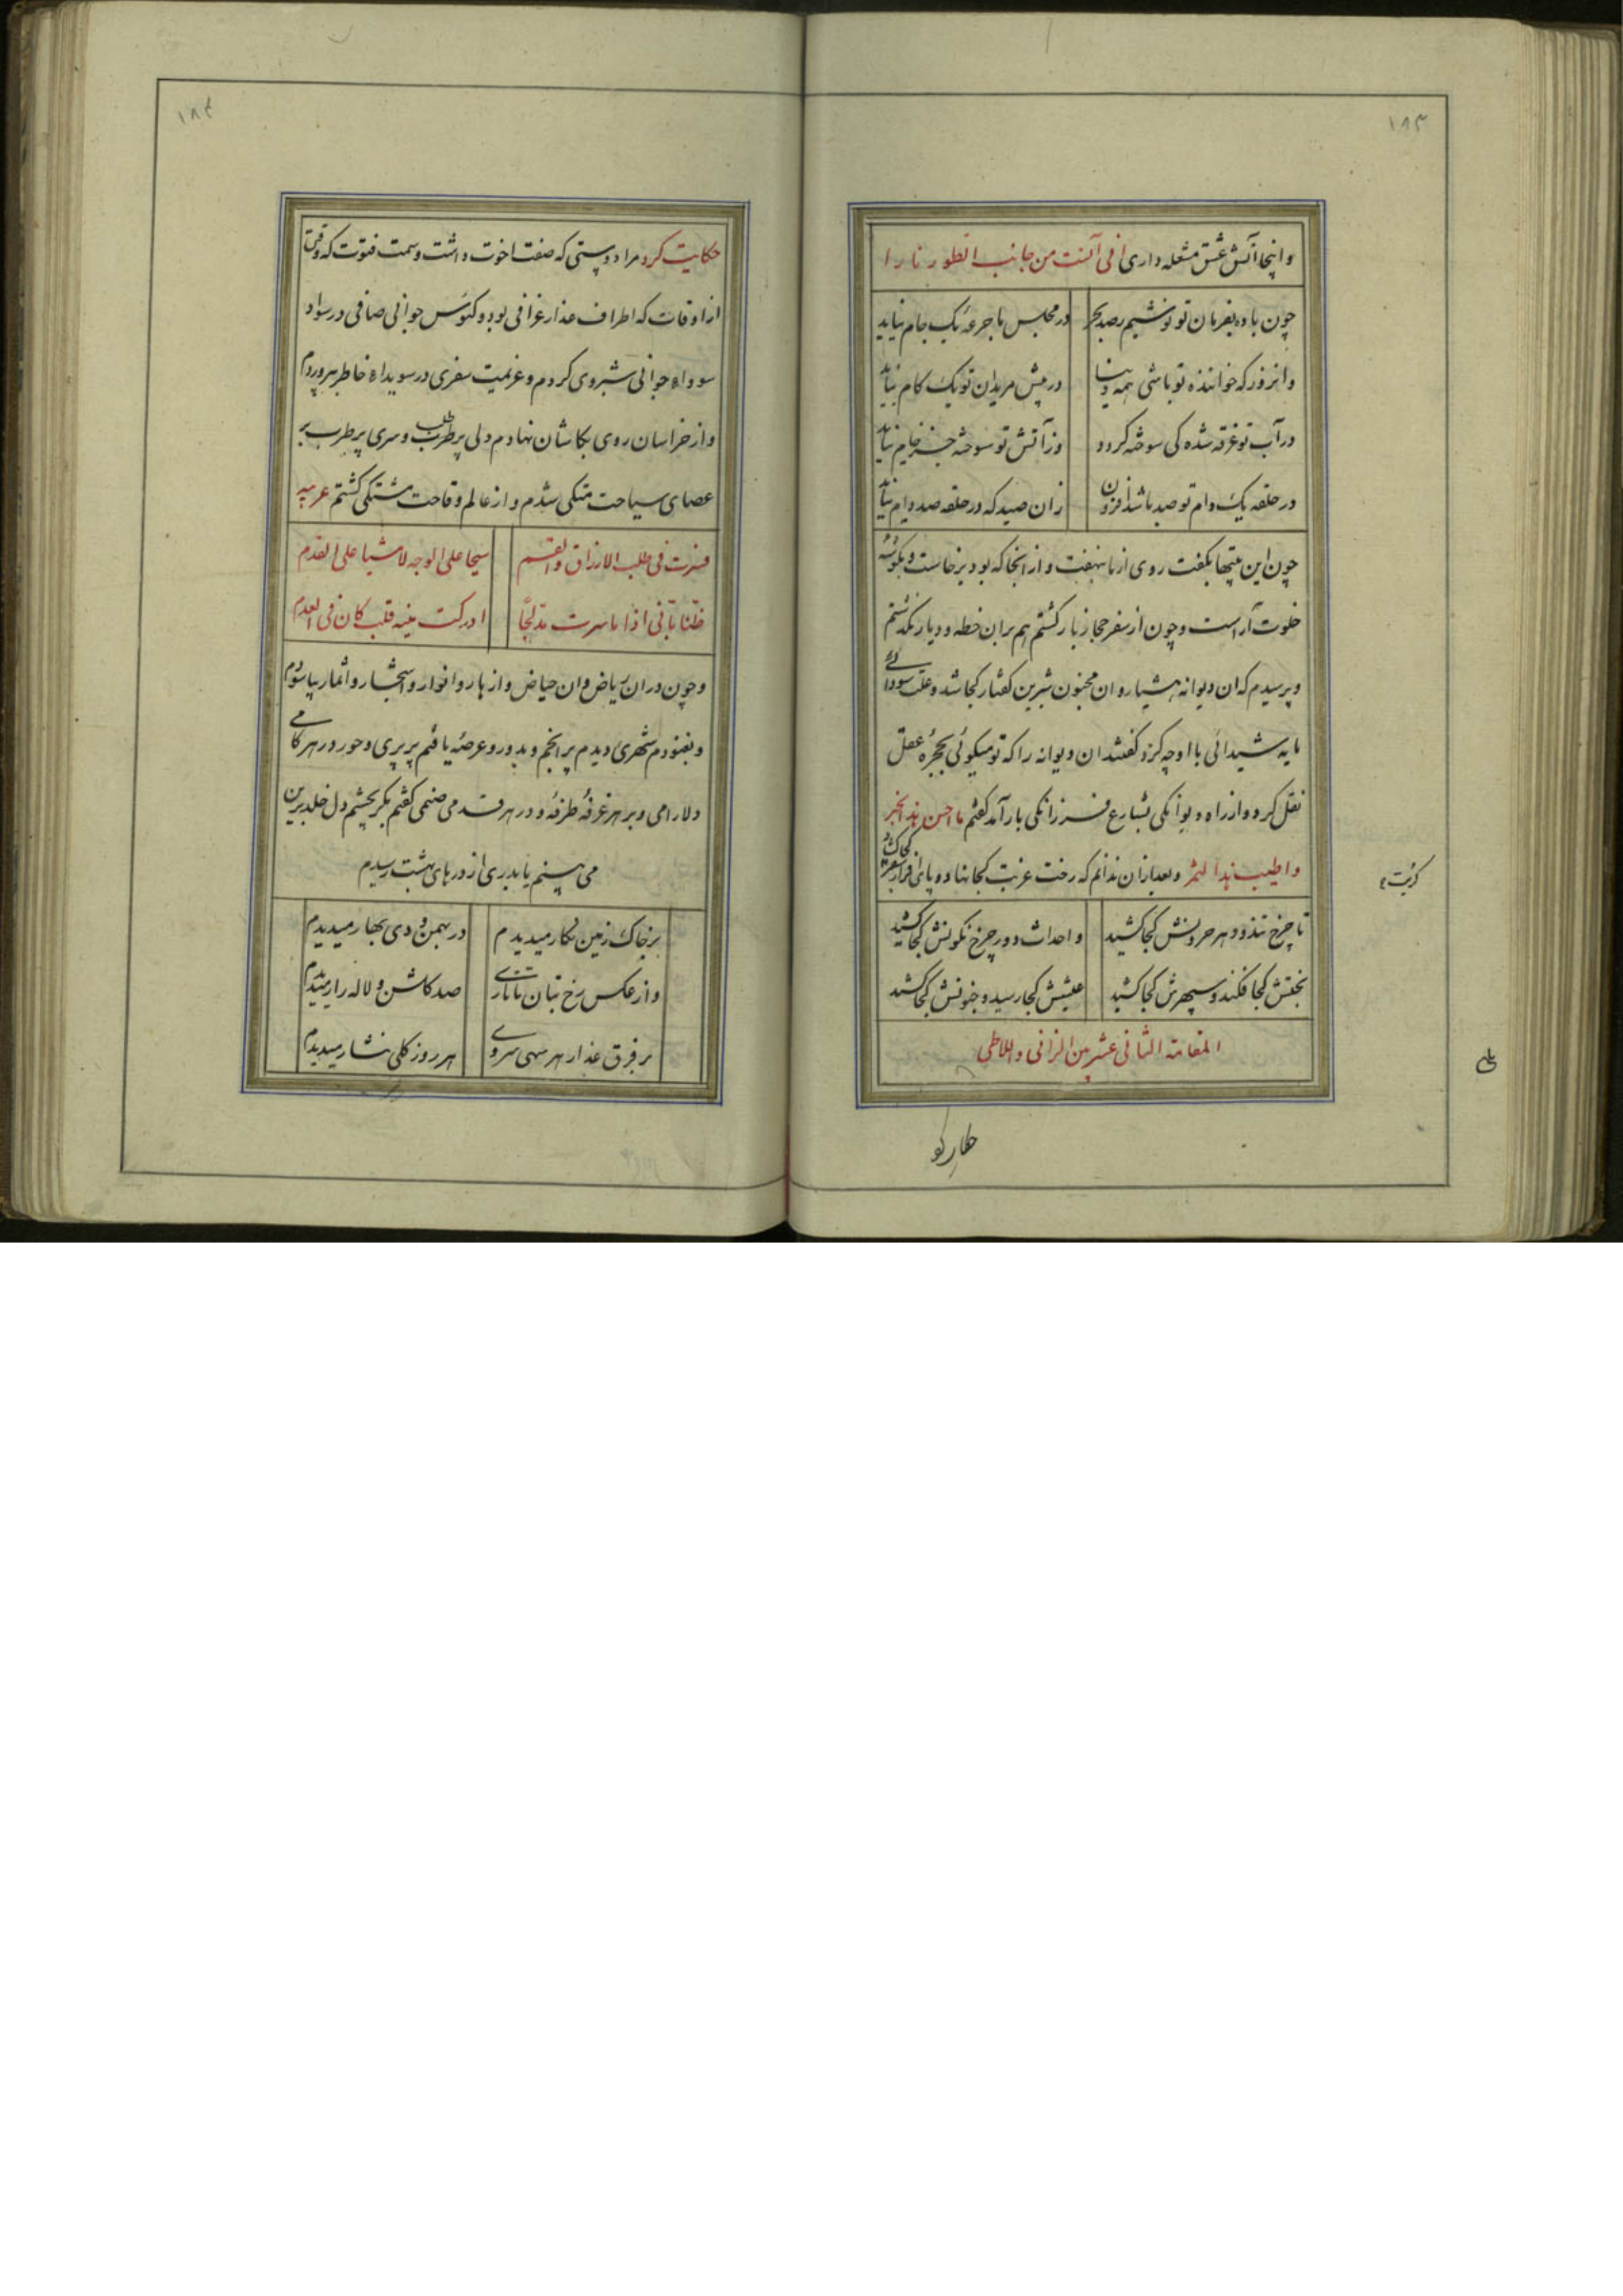 ۱۸۳
و اینجا آتش عشق مشعله داری انی آنست من جانب الطور نارا
چون باده بفرمان تو نوشیم بصد بحر
در مجلس ما جرعه یک جام نیاید
وانروز که خواننده تو باشی همه دنیا
در پیش مریدان تو یک کام نیاید
در آب تو غرقه شده کی سوخته کردد
وز آتش تو سوخته جز خام نیاید
در حلقه یک دام تو صید باشد افزون
زان صید که در حلقه صد دام نیاید
چون این بیتها بکفت روی از ما بنهفت و از انجا که بود برخاست و بکوشه
خلوت آراست و چون از سفر حجاز باز کشتم هم بران خطه و دیار بکذشتم
و پرسیدم که ان دیوانه هشیار و ان مجنون شیرین کفتار کجا شد و علت سودائے
مایه شیدائی با او چه کرد کفتند ان دیوانه را که تو میکوئی بحجره عقل
نقل کرد و از راه دیوانکی بشارع فرزانکی باز آمد کفتم ما احسن هذا الخبر
و اطیب هذا الثمر و بعد ازان ندانم که رخت غربت کجا نهاد و پای افزار سفر کجا کشاد
تا چرخ تند و دهر حرونش کجا کشید
و احداث دور چرخ نکونش کجا کشید
بختش کجا فکند و سپهرش کجا کشید
عیشش کجا رسید و جنونش کجا کشید
المقامة الثانی عشر بین الزانی و اللاطی
۱۸۴
حکایت کرد مرا دوستی که صفت اخوت داشت و سمت فتوت که وقتی
از اوقات که اطراف عذار غرافی بود و کئوس جوانی صافی در سواد
سوداء جوانی شبروی کردم و عزیمت سفری در سویداء خاطر بپروردم
و از خراسان روی بکاشان نهادم دلی پر طلب و سری پر طرب بر
عصای سیاحت متکی شدم و از عالم وقاحت مشتکی کشتم عربیه
فسرت فی طلب الارزاق والقسم
سیحا علی الوجه لا مشیا علی القدم
ظنا بانی اذا ما سرت مدلجا
ادرکت منیه قلب کان فی العدم
و چون دران ریاض و ان حیاض و ازهار و انوار و اشجار و اثمار بیاسودم
و بغنودم شهری دیدم پر انجم و بدور و عرصهٔ یافتم پر پری و حور در هر کامے
دلارامی و بر هر غرفهٔ طرفهٔ و در هر قدمی صنمی کفتم مکر بچشم دل خلد برین
می بینم یا بدری از درهای بهشت رسیدم
بر خاک زمین نکار میدیدم
در بهمن و دی بهار میدیدم
و از عکس رخ بتان تاتارے
صد کلشن و لاله زار میدیدم
بر فرق عذار هر سهی سروے
هر روز کلی نثار میدیدم